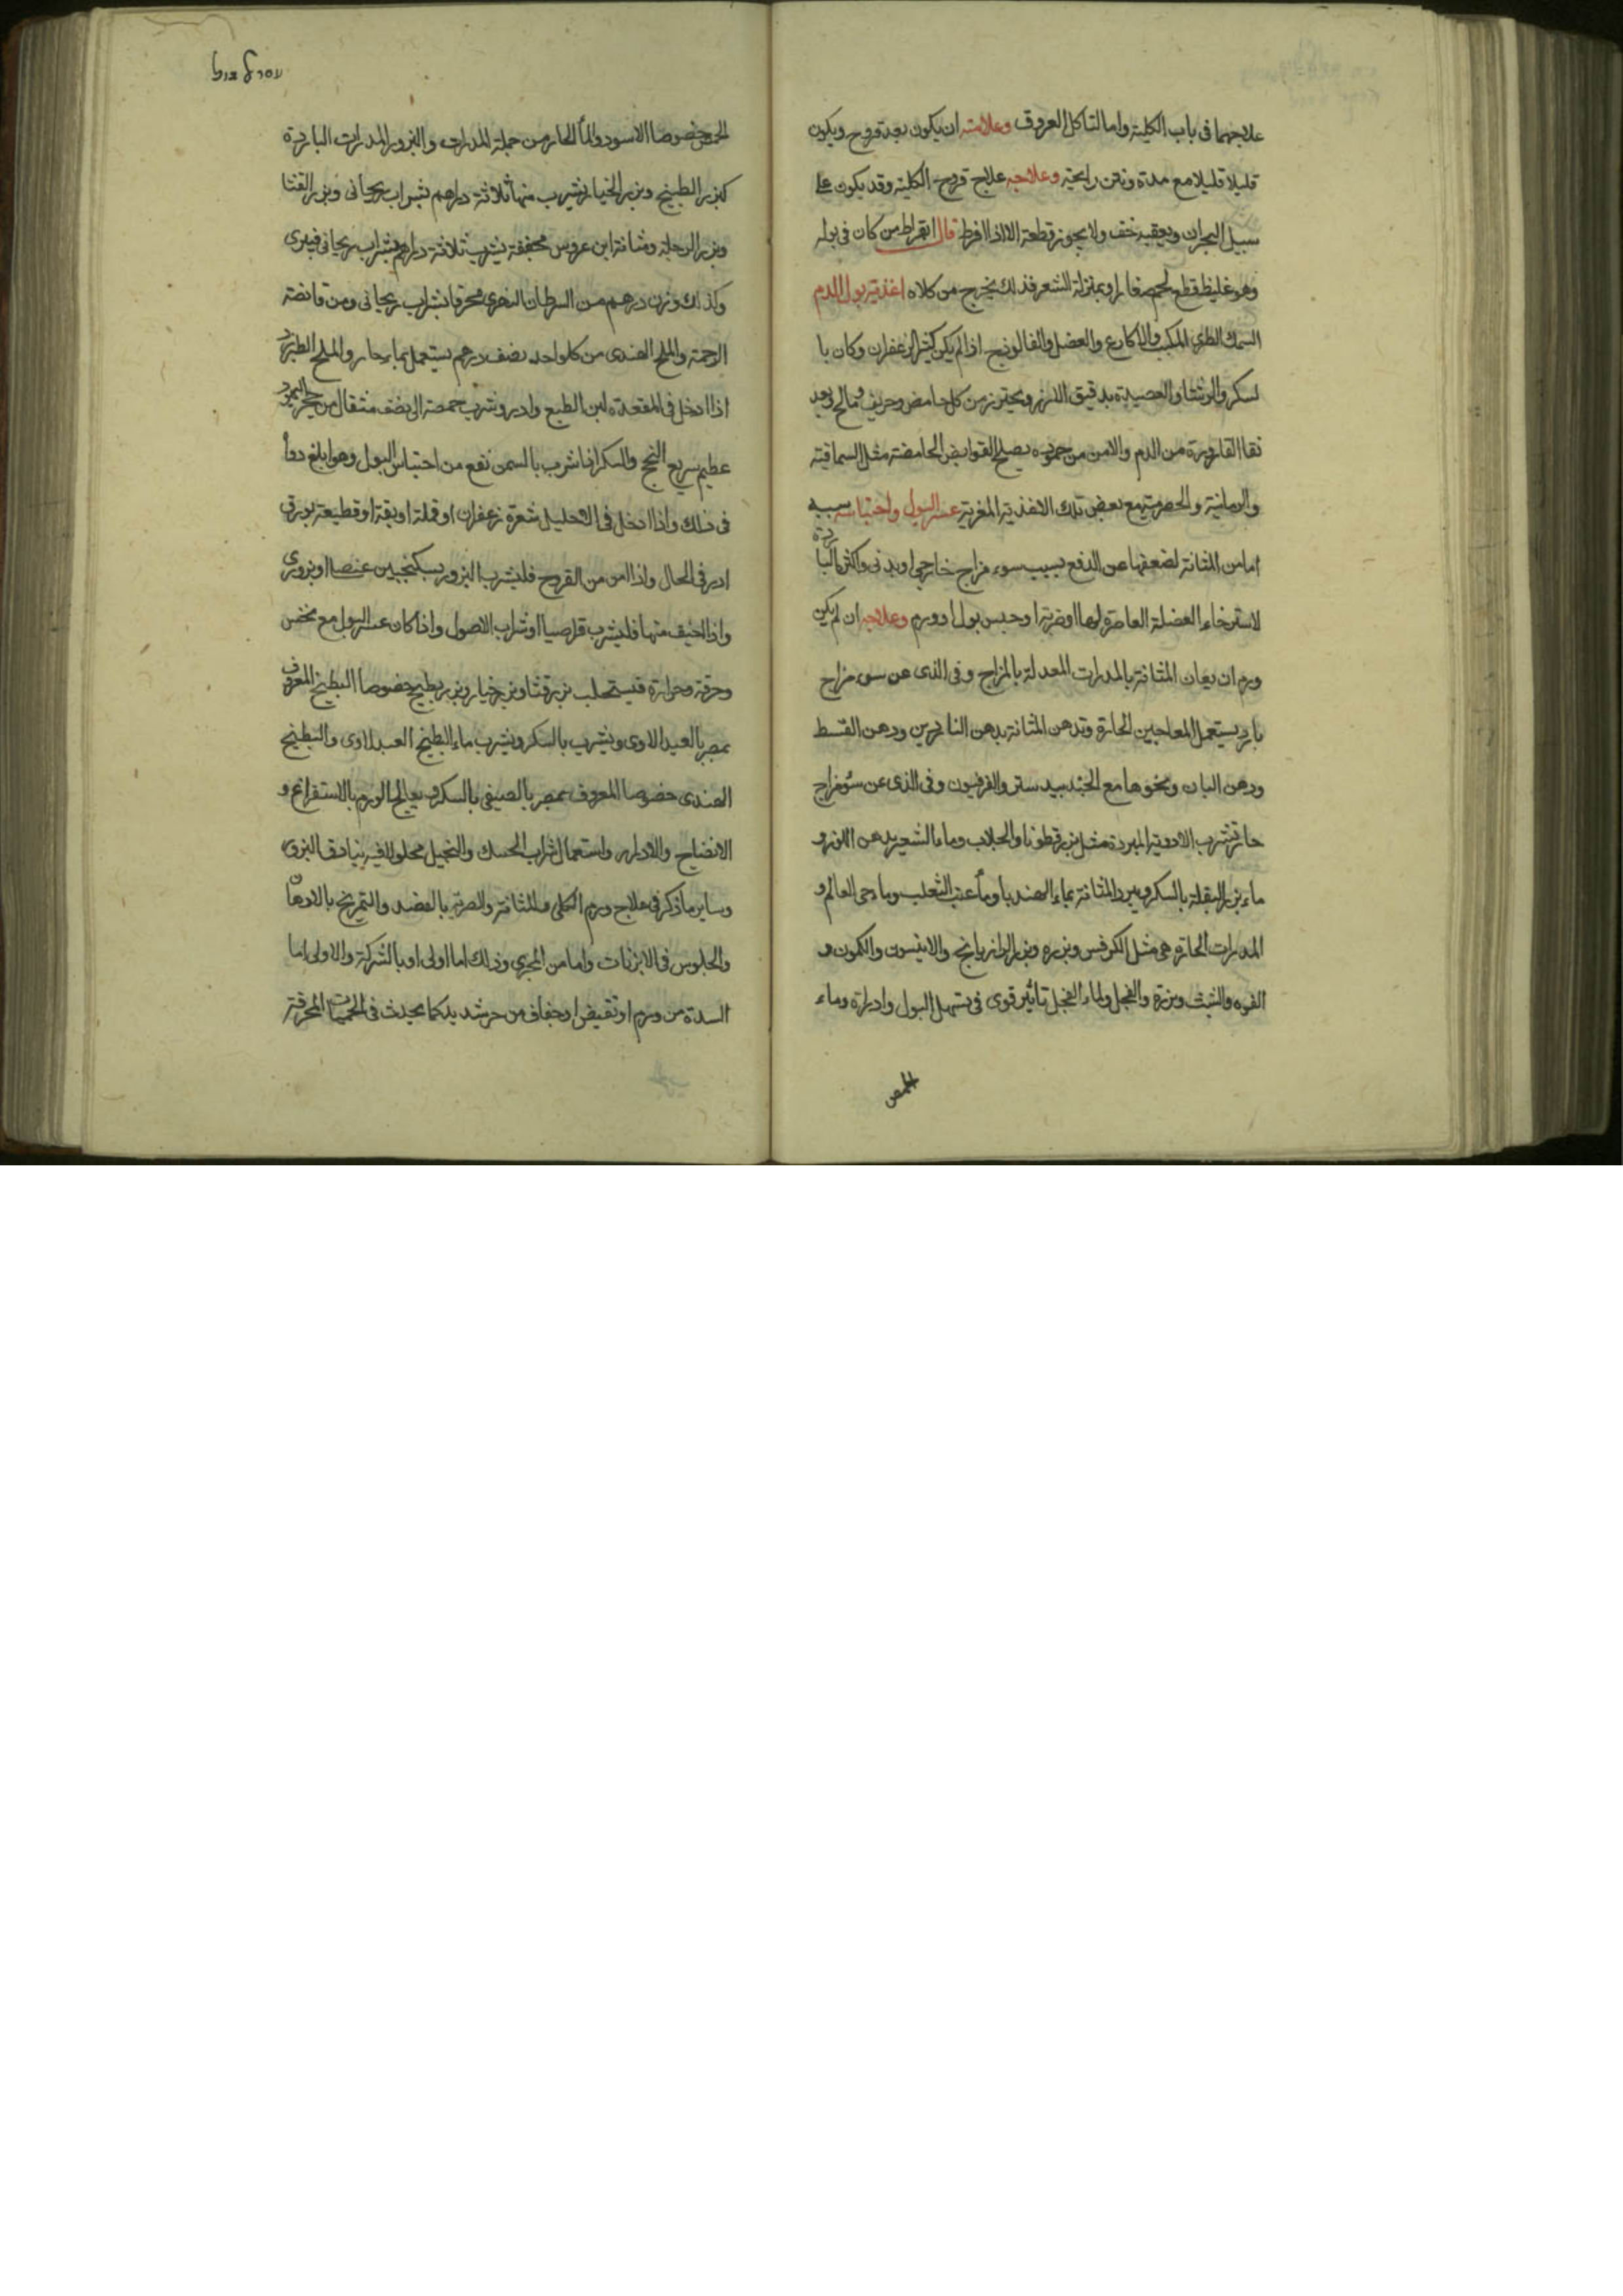 علاجهما فى باب الكلية واما التاكل العروق وعلامته ان يكون بعد قروح ويكون
قليلا قليلا مع مدة ونتن رايحته وعلاجه علاج قروح الكلية وقد يكون على
سبيل البحران ويعقبه خف ولا يجوز قطعة الا اذا افرط قال ابقراط من كان فى بوله
وهو غليظ قطع لحم صغار او بمنزلة الشعر فذلك يخرج من كلاه اغذية بول الدم
السمك الطرى المكبب والاكارع والعضل والفالوذج اذا لم يكن كثير الزعفران وكان با
لسكر والرشتا والعصيدة بدقيق الارز ويحترز من كل حامض وحريف ومالح وبعد
نقا القارورة من الدم والامن من جموده يصلح القوابض الحامضة مثل السماقية
والرمانية والحصرمية مع بعض تلك الاغذية المغرية عسر البول واحتباسه سببه
اما من المثانة لضعفها عن الدفع بسبب سوء مزاج خارجى او بدنى واكثرها البا
ردة
لاسترخاء العضلة العاصرة لها او ضربة او حبس بول او ورم وعلاجه ان لم يكن
ورم ان يعان المثانة بالمدرات المعدلة بالمزاج وفى الذى عن سوء مزاج
بارد يستعمل المعاجين الحارة وتدهن المثانة بدهن الناردين ودهن القسط
ودهن البان ونحوها مع الجندبيدستر والفرفيون وفى الذى عن سؤ مزاج
حار تشرب الادوية المبردة مثل بزر قطونا والجلاب وماء الشعير بدهن اللوز و
ماء بزر البقلة بالسكر ويبرد المثانة بماء الهندبا وماء عنب الثعلب وماء حى العالم و
المدرات الحارة هى مثل الكرفس وبزره وبزر الرازيانج والانيسون والكمون و
الفوه والشبث وبزرة والفجل ولماء الفجل تاثير قوى فى تسهيل البول وادراره وماء
الحمص
الحمص خصوصا الاسود والماء الحار من جملة المدرات والبزور المدرات الباردة
كبزر البطيخ وبزر الخيار يشرب منها ثلاثة دراهم بشراب ريحانى وبزر القثا
وبزر الرجلة ومثانة ابن عروس مجففة يشرب ثلاثة دراهم بشراب ريحانى فيبرى
وكذلك وزن درهم من السرطان النهرى محرقا بشراب ريحانى ومن قانصة
الرخمة والملح الهندى من كل واحد نصف درهم يستعمل بماء حار والملح الطبرزد
اذا ادخل فى المقعدة لين الطبع وادر وشرب حمصة الى نصف مثقال من حجر اليهود
عظيم سريع النجح والسكر اذا شرب بالسمن نفع من احتباس البول وهو ابلغ دواء
فى ذلك واذا ادخل فى الاحليل شعرة زعفران او قملة او بقة او قطيعة بورق
ادر فى الحال واذا امن من القروح فليشرب البزور بسكنجبين عنصلى او بزورى
واذا خيف منها فليشرب قراصيا او شراب الاصول واذا كان عسر البول مع نخس
وحرقة وحرارة فيستحلب بزر قثا وبزر خيار وبزر بطيخ خصوصا البطيخ المعروف
بمصر بالعبد الاوى ويشرب بالسكر ويشرب ماء البطيخ العبدلاوى والبطيخ
الهندى خصوصا المعروف بمصر بالصيفى بالسكر ويعالج الورم بالاستفراغ و
الانضاج والادرار واستعمال شراب الحسك والنجيل محلولا فيه بنادق البزور
وساير ما ذكر فى علاج ورم الكلى والمثانة والضربة بالفصد والتمريخ بالادهان
والجلوس فى الابزنات واما من المجرى وذلك اما اولى او بالشركة والاولى اما
السدة من ورم او تقبيض او جفاف من حر شديد كما يحدث فى الحميات المحرقة